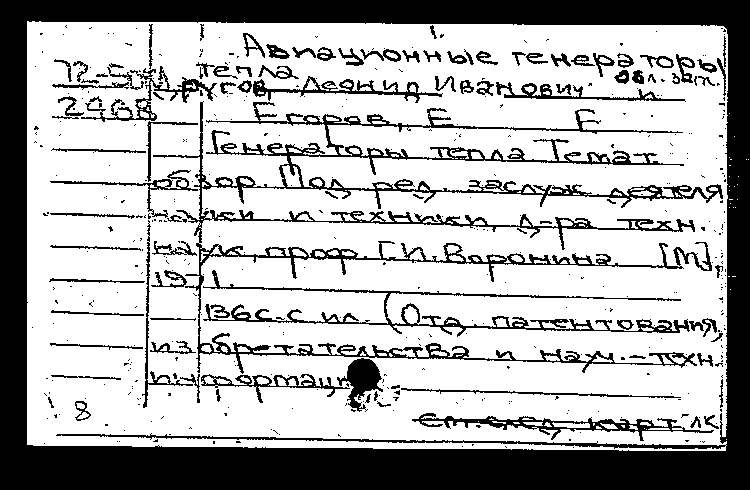 1.
Авиационные генераторы
тепла обл. загл.
72-5
2468
Другов, Леонид Иванович и
Егоров, Е Е
Генераторы тепла Темат.
обзор. Под ред. заслуж деятеля
науки и техники, д-ра техн.
наук, проф. Г.И. Воронина. [М],
1971.
136с. с ил. (Отд. патентования,
изобретательства и науч.-техн.
информации
8
См. след. карт лк